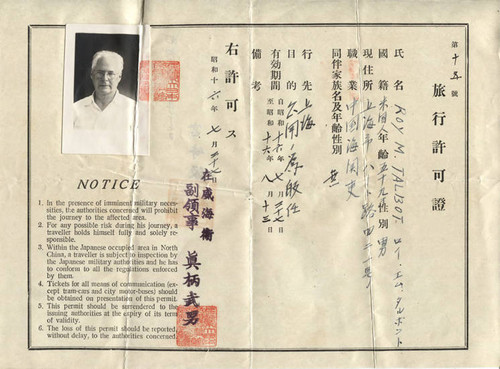 第十五號
旅行許可證
氏名 ROY M. TALBOT ロイ.エム.タルボット
國籍 米國人 年齡 五十九 性別 男
現住所 上海市
職業 中國海関吏
同伴家族名及年齡性別 無
行先 上海
目的
有効期間 自昭和十六年七月 日
至昭和十六年八月十三日
備考
右許可ス
昭和十六年七月 日
在威海衛
副領事 眞柄武男
NOTICE
1. In the presence of imminent military neces-
sities, the authorities concerned will prohibit
the journey to the affected area.
2. For any possible risk during his journey, a
traveller holds himself fully and solely re-
sponsible.
3. Within the Japanese occupied area in North
China, a traveller is subject to inspection by
the Japanese military authorities and he has
to conform to all the regulations enforced
by them.
4. Tickets for all means of communication (ex-
cept tram-cars and city motor-buses) should
be obtained on presentation of this permit.
5. This permit should be surrendered to the
issuing authorities at the expiry of its term
of validity.
6. The loss of this permit should be reported,
without delay, to the authorities concerned.